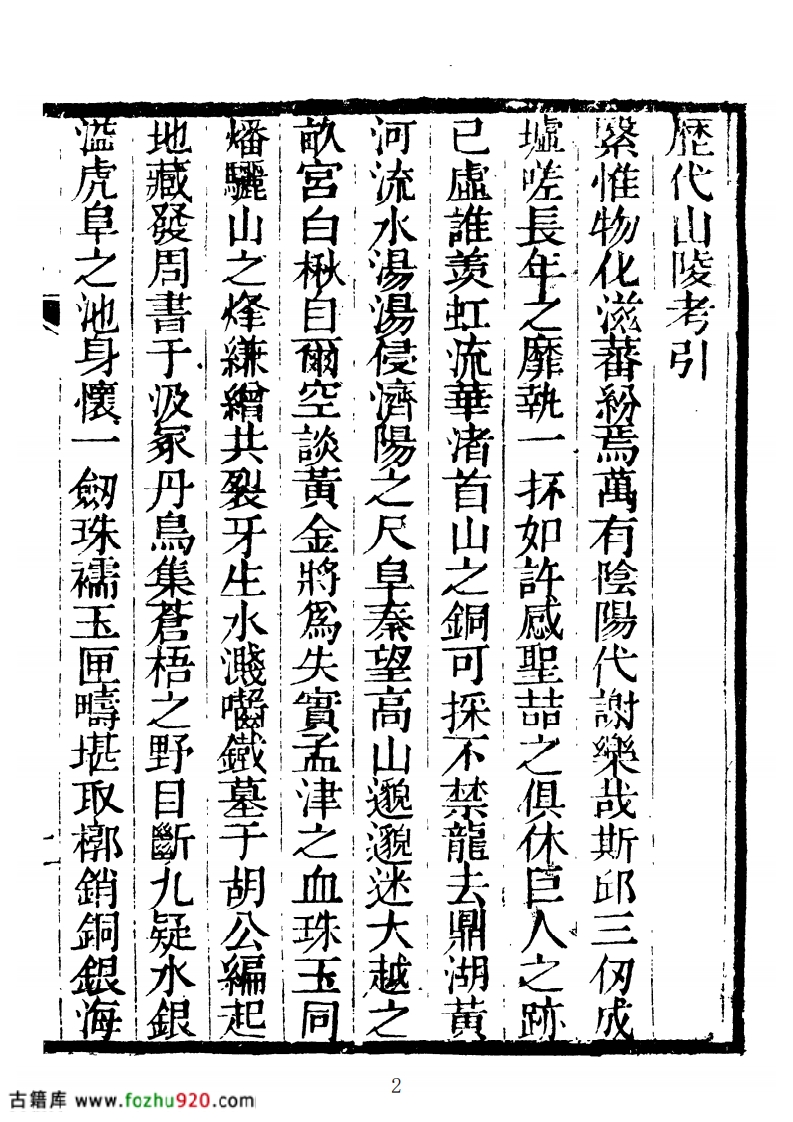 歷代山陵考引
繄惟物化滋蕃紛焉萬有陰陽代謝樂哉斯邱三仭成
墟嗟長年之靡執一抔如許感聖喆之俱休巨人之跡
已虛誰羨虹流華渚首山之銅可採不禁龍去鼎湖黃
河流水湯湯侵濟陽之尺阜秦望高山邈邈迷大越之
畝宮白楸自爾空談黃金將爲失實孟津之血珠玉同
燔驪山之烽縑繒共裂牙生水濺嚼鐵墓于胡公編起
地藏發周書于汲冢丹鳥集蒼梧之野目斷九疑水銀
溢虎阜之池身懷一劒珠襦玉匣疇堪取槨銷銅銀海
2
古籍库 www.fozhu920.com